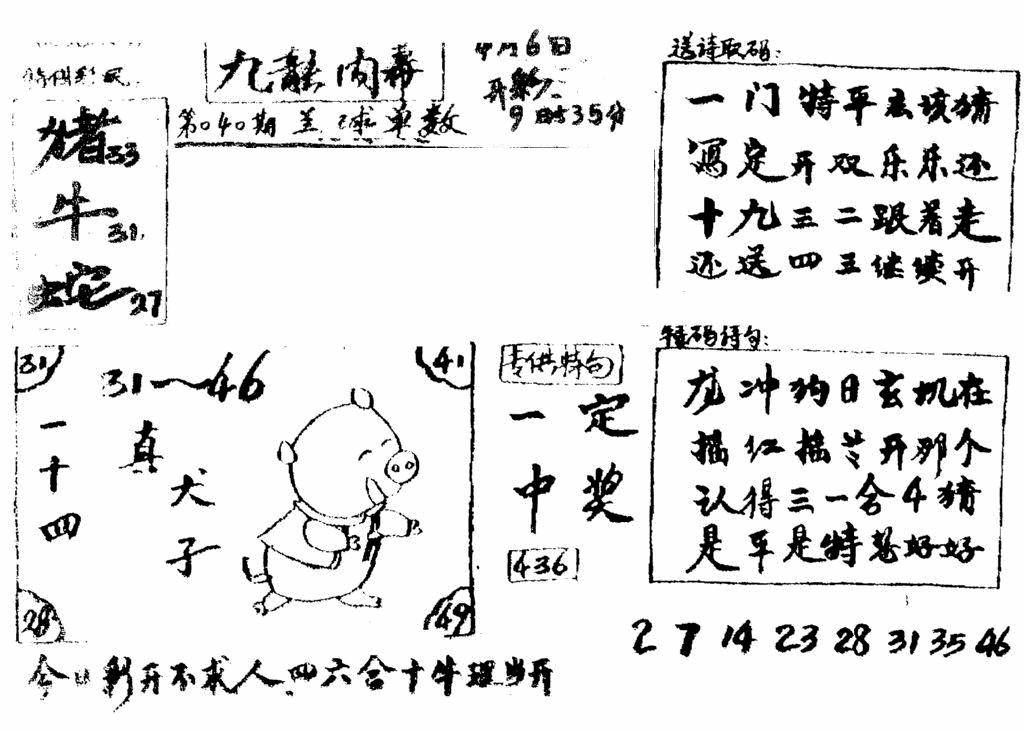 九龙内幕
第040期 兰 球单数
6日
9时35分
猪33
牛31
蛇27
送诗取码:
一门特平去该猜
写定开双乐乐还
十九三二跟着走
还送四五继续开
31
41
31~46
一十四
真犬子
28
49
专供特句
一定
中奖
436
特码诗句:
龙冲狗日玄机在
摇红摇兰开那个
认得三一合4猜
是平是特都好好
2 7 14 23 28 31 35 46
今日彩开不求人四六合十牛理当开